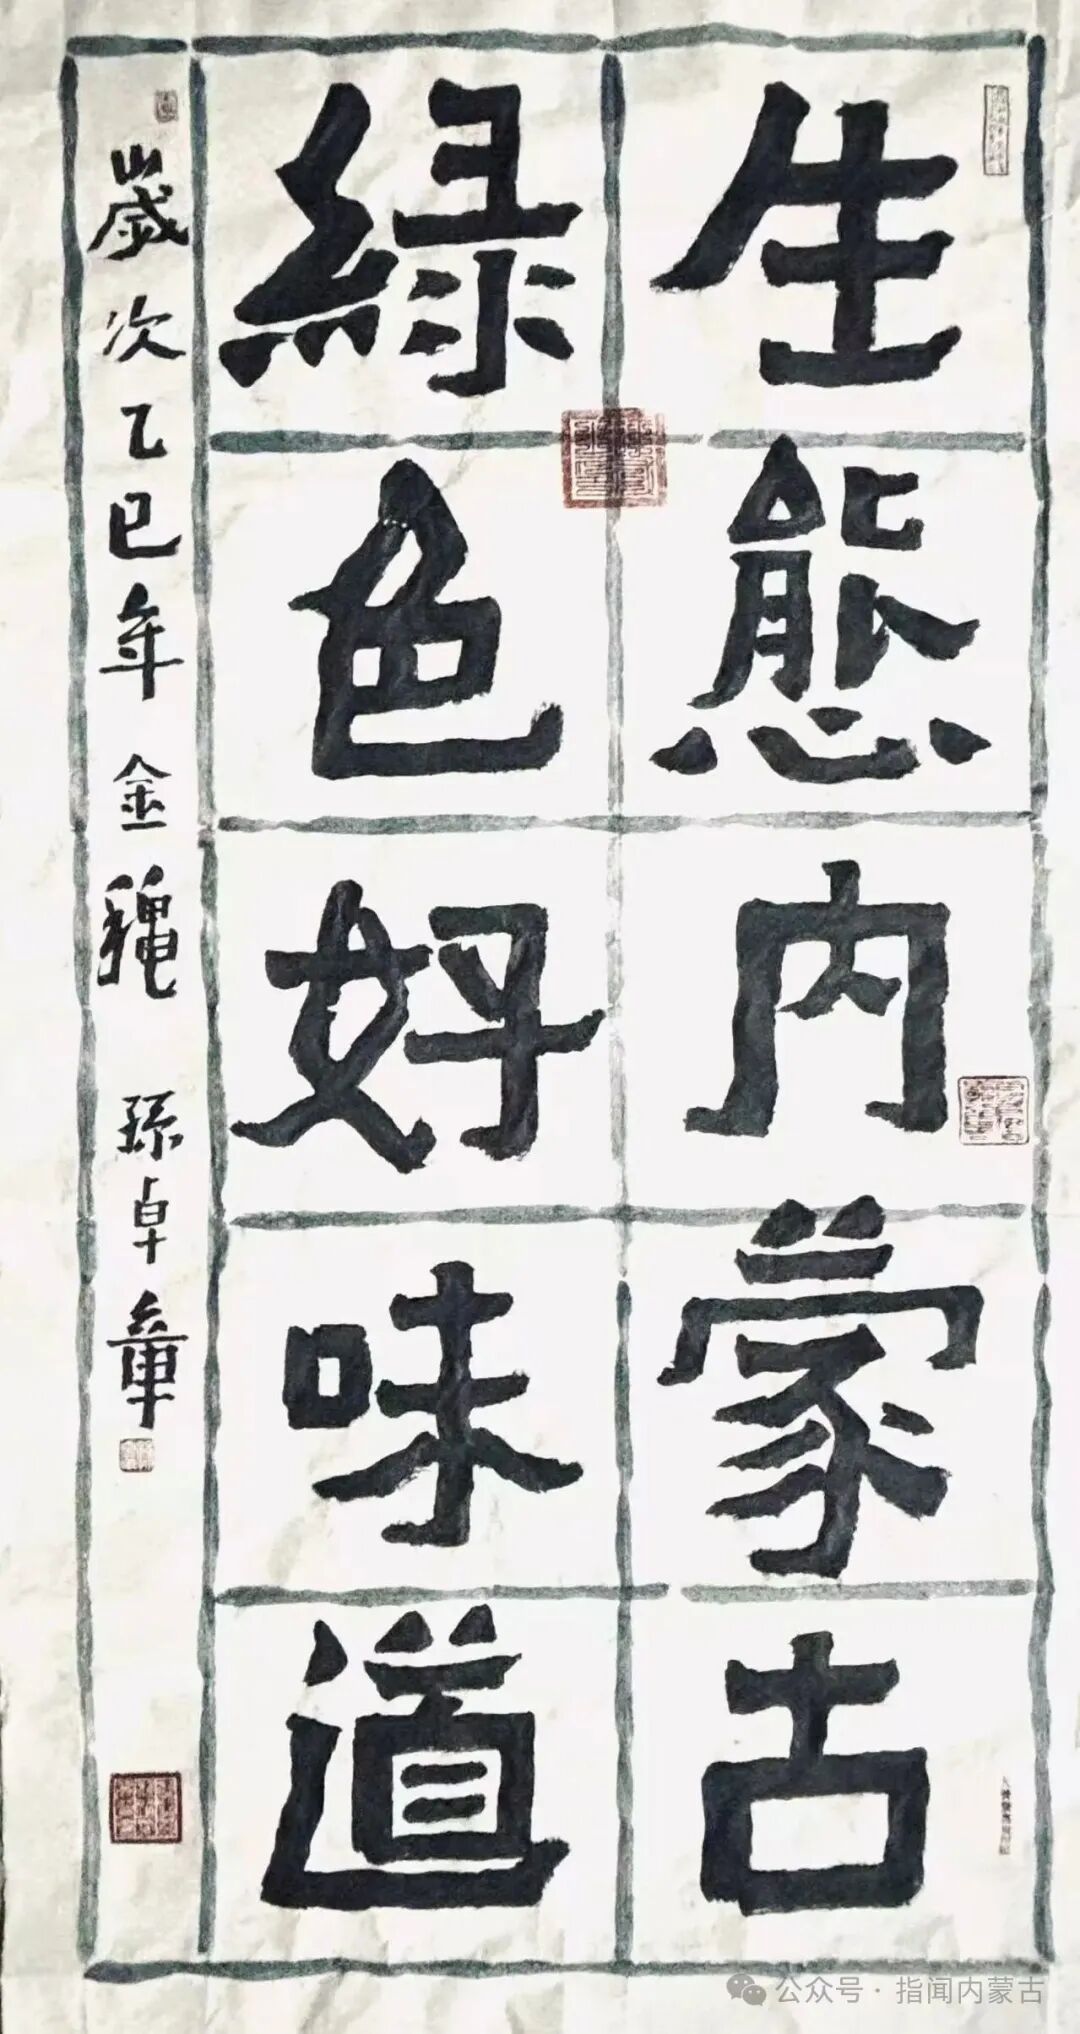 生態内蒙古
綠色好味道
歲次乙巳年金龝 孫卓章
公众号·指闻内蒙古